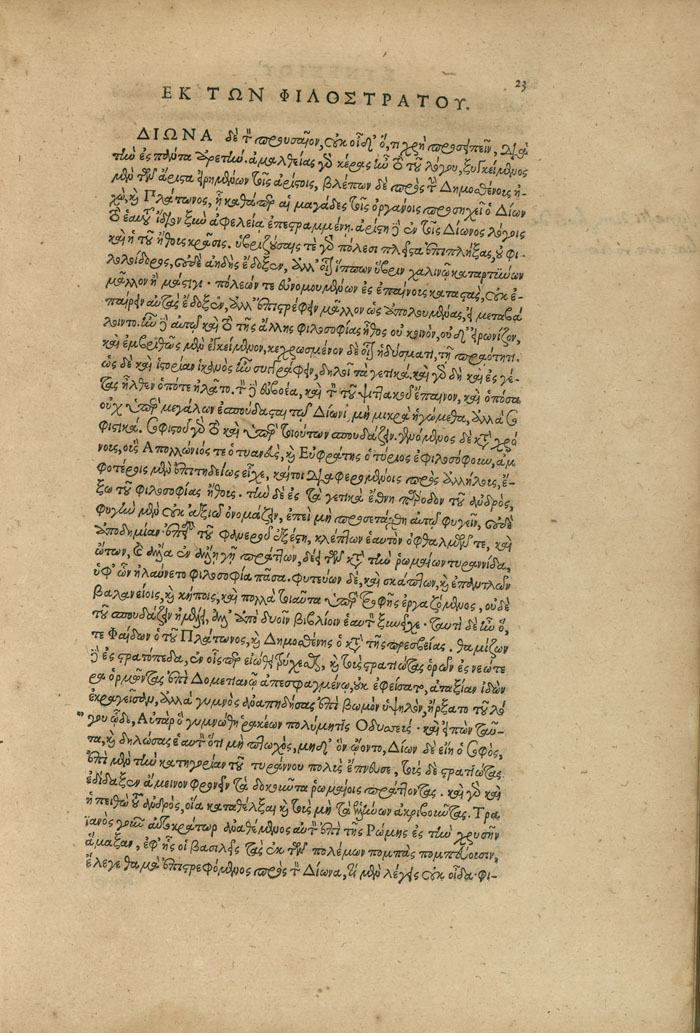 23
ΕΚ ΤΩΝ ΦΙΛΟΣΤΡΑΤΟΥ.
ΔΙΩΝΑ δὲ τὸν προυσαῖον, οὐκ οἶδ' ὅ, τι χρὴ προσειπεῖν, διὰ
τὴν ἐς πάντα ἀρετὴν. ἀμαλθείας γὸ κέρας ἦν τὸ τοῦ λόγου, ξυγκείμενος
μὲν τῶν ἄριστα εἰρημένων τοῖς ἀρίστοις, βλέπων δὲ πρὸς τὴν Δημοσθένοις ἠ-
χὼ, καὶ Πλάτωνος, ᾗ καθάπερ αἱ μαγάδες τοῖς ὀργάνοις προσηχεῖ ὁ Δίων
τὸ ἑαυτοῦ ἴδιον ξὺν ἀφελεία ἐπεστραμμένη. ἀρίστη δὲ ἐν τοῖς Δίωνος λόγοις
καὶ ἡ τοῦ ἤθοις κρᾶσις. ὑβριζούσαις τε γὸ πόλεσι πλεῖστα ἐπιπλήξας, οὐ φι-
λολοίδορος, οὐδὲ ἀηδὴς ἔδοξεν, ἀλλ' οἷον ἵππων ὕβριν χαλινῷ καταρτύων
μᾶλλον ἢ μάστιγι· πόλεών τε εὐνομουμένων ἐς ἐπαίνοις καταστὰς, οὐκ ἐ-
παίρειν αὐτὰς ἔδοξεν, ἀλλ' ἐπιστρέφειν μᾶλλον ὡς ἀπολουμένας, εἰ μεταβά
λοιντο. ἦν δὲ αὐτῷ καὶ τὸ τῆς ἄλλης φιλοσοφίας ἦθος οὐ κοινὸν, οὐδ' εἰρωνίζον,
καὶ ἐμβριθῶς μὲν ἐγκείμενον, κεχρωσμένον δὲ οἷον ἡδύσματι, τῇ πραότητι.
ὡς δὲ καὶ ἱστορίαν ἱκανὸς ἦν συγγράφειν, δηλοῖ τὰ γετικά. καὶ γὸ δὴ καὶ ἐς γέ-
τας ἦλθεν ὁπότε ἠλᾶτο. τὸν δὲ εὐβοέα, καὶ τὸν τοῦ ψιττακοῦ ἔπαινον, καὶ ὁπόσα
οὐχ ὑπὲρ μεγάλων ἐσπούδασται τῷ Δίωνι, μὴ μικρὰ ἡγώμεθα, ἀλλὰ σο
φιστικά. σοφιστοῦ γὸ τὸ καὶ ὑπὲρ τοιούτων σπουδάζειν. γενόμενος δὲ κατὰ χρό
νοις, οἷς Ἀπολλώνιός τε ὁ τυανεὺς, καὶ Εὐφράτης ὁ τύριος ἐφιλοσόφουν, ἀμ
φοτέροις μὲν ἐπιτηδείως εἶχε, καίτοι διαφερομένοις πρὸς ἀλλήλοις, ἔ-
ξω τοῦ φιλοσοφίας ἤθοις· τὴν δὲ ἐς τὰ γετικὰ ἔθνη πάροδον τοῦ ἀνδρὸς,
φυγὴν μὲν οὐκ ἀξιῶ ὀνομάζειν, ἐπεὶ μὴ προσετάχθη αὐτῷ φυγεῖν, οὐδὲ
ἀποδημίαν· ἐπειδὴ τοῦ φανεροῦ ἐξέστη, κλέπτων ἑαυτὸν ὀφθαλμῶν τε, καὶ
ὤτων, καὶ ἄλλα ἐν ἄλλῃ γῇ πράττων, δέει τῶν κατὰ τὴν ῥωμαίων τυραννίδα,
ὑφ' ὧν ἠλαύνετο φιλοσοφία πᾶσα. φυτεύων δὲ, καὶ σκάπτων, καὶ ἐπαντλῶν
βαλανείοις, καὶ κήποις, καὶ πολλὰ τοιαῦτα ὑπὲρ τροφῆς ἐργαζόμενος, οὐδὲ
τοῦ σπουδάζειν ἠμέλει, ἀλλ' ἀπὸ δυοῖν βιβλίοιν ἑαυτὸν ξυνεῖχε· ταυτὶ δὲ ἦν ὅ,
τε Φαίδων ὁ τοῦ Πλάτωνος, καὶ Δημοσθένης ὁ κατὰ τῆς πρεσβείας· θαμίζων
δὲ ἐς στρατόπεδα, ἐν οἷς περ εἰώθει τρύχεσθαι, καὶ τοὺς στρατιώτας ὁρῶν ἐς νεώτε
ρα ὁρμῶντας ἐπὶ Δομετιανῷ ἀπεσφαγμένῳ, οὐκ ἐφείσατο, ἀταξίαν ἰδὼν
ἐκραγεῖσαν, ἀλλὰ γυμνὸς ἀναπηδήσας ἐπὶ βωμὸν ὑψηλὸν, ἤρξατο τοῦ λό
γου ὧδε, Αὐτὰρ ὁ γυμνώθη ῥακέων πολύμητις Ὀδυσσεύς· καὶ εἰπὼν ταῦ-
τα, καὶ δηλώσας ἑαυτὸν ὅτι μὴ πτωχὸς, μηδ' ὃν ᾤοντο, Δίων δὲ εἴη ὁ σοφὸς,
ἐπὶ μὲν τὴν κατηγορίαν τοῦ τυράννου πολὺς ἔπνευσε, τοὺς δὲ στρατιώτας
ἐδίδαξεν ἄμεινον φρονεῖν τὰ δοκοῦντα ῥωμαίοις πράττοντας. καὶ γὸ καὶ
ἡ πειθὼ τοῦ ἀνδρὸς, οἵα καταθέλξαι καὶ τοὺς μὴ τὰ ἑλλήνων ἀκριβοῦντας. Τρα
ϊανὸς γοῦν αὐτοκράτωρ ἀναθέμενος αὐτὸν ἐπὶ τῆς Ῥώμης ἐς τὴν χρυσῆν
ἅμαξαν, ἐφ' ἧς οἱ βασιλεῖς τὰς ἐκ τῶν πολέμων πομπὰς πομπεύουσιν,
ἔλεγε θαμὰ ἐπιστρεφόμενος πρὸς τὸν Δίωνα, τί μὲν λέγεις οὐκ οἶδα· φι-